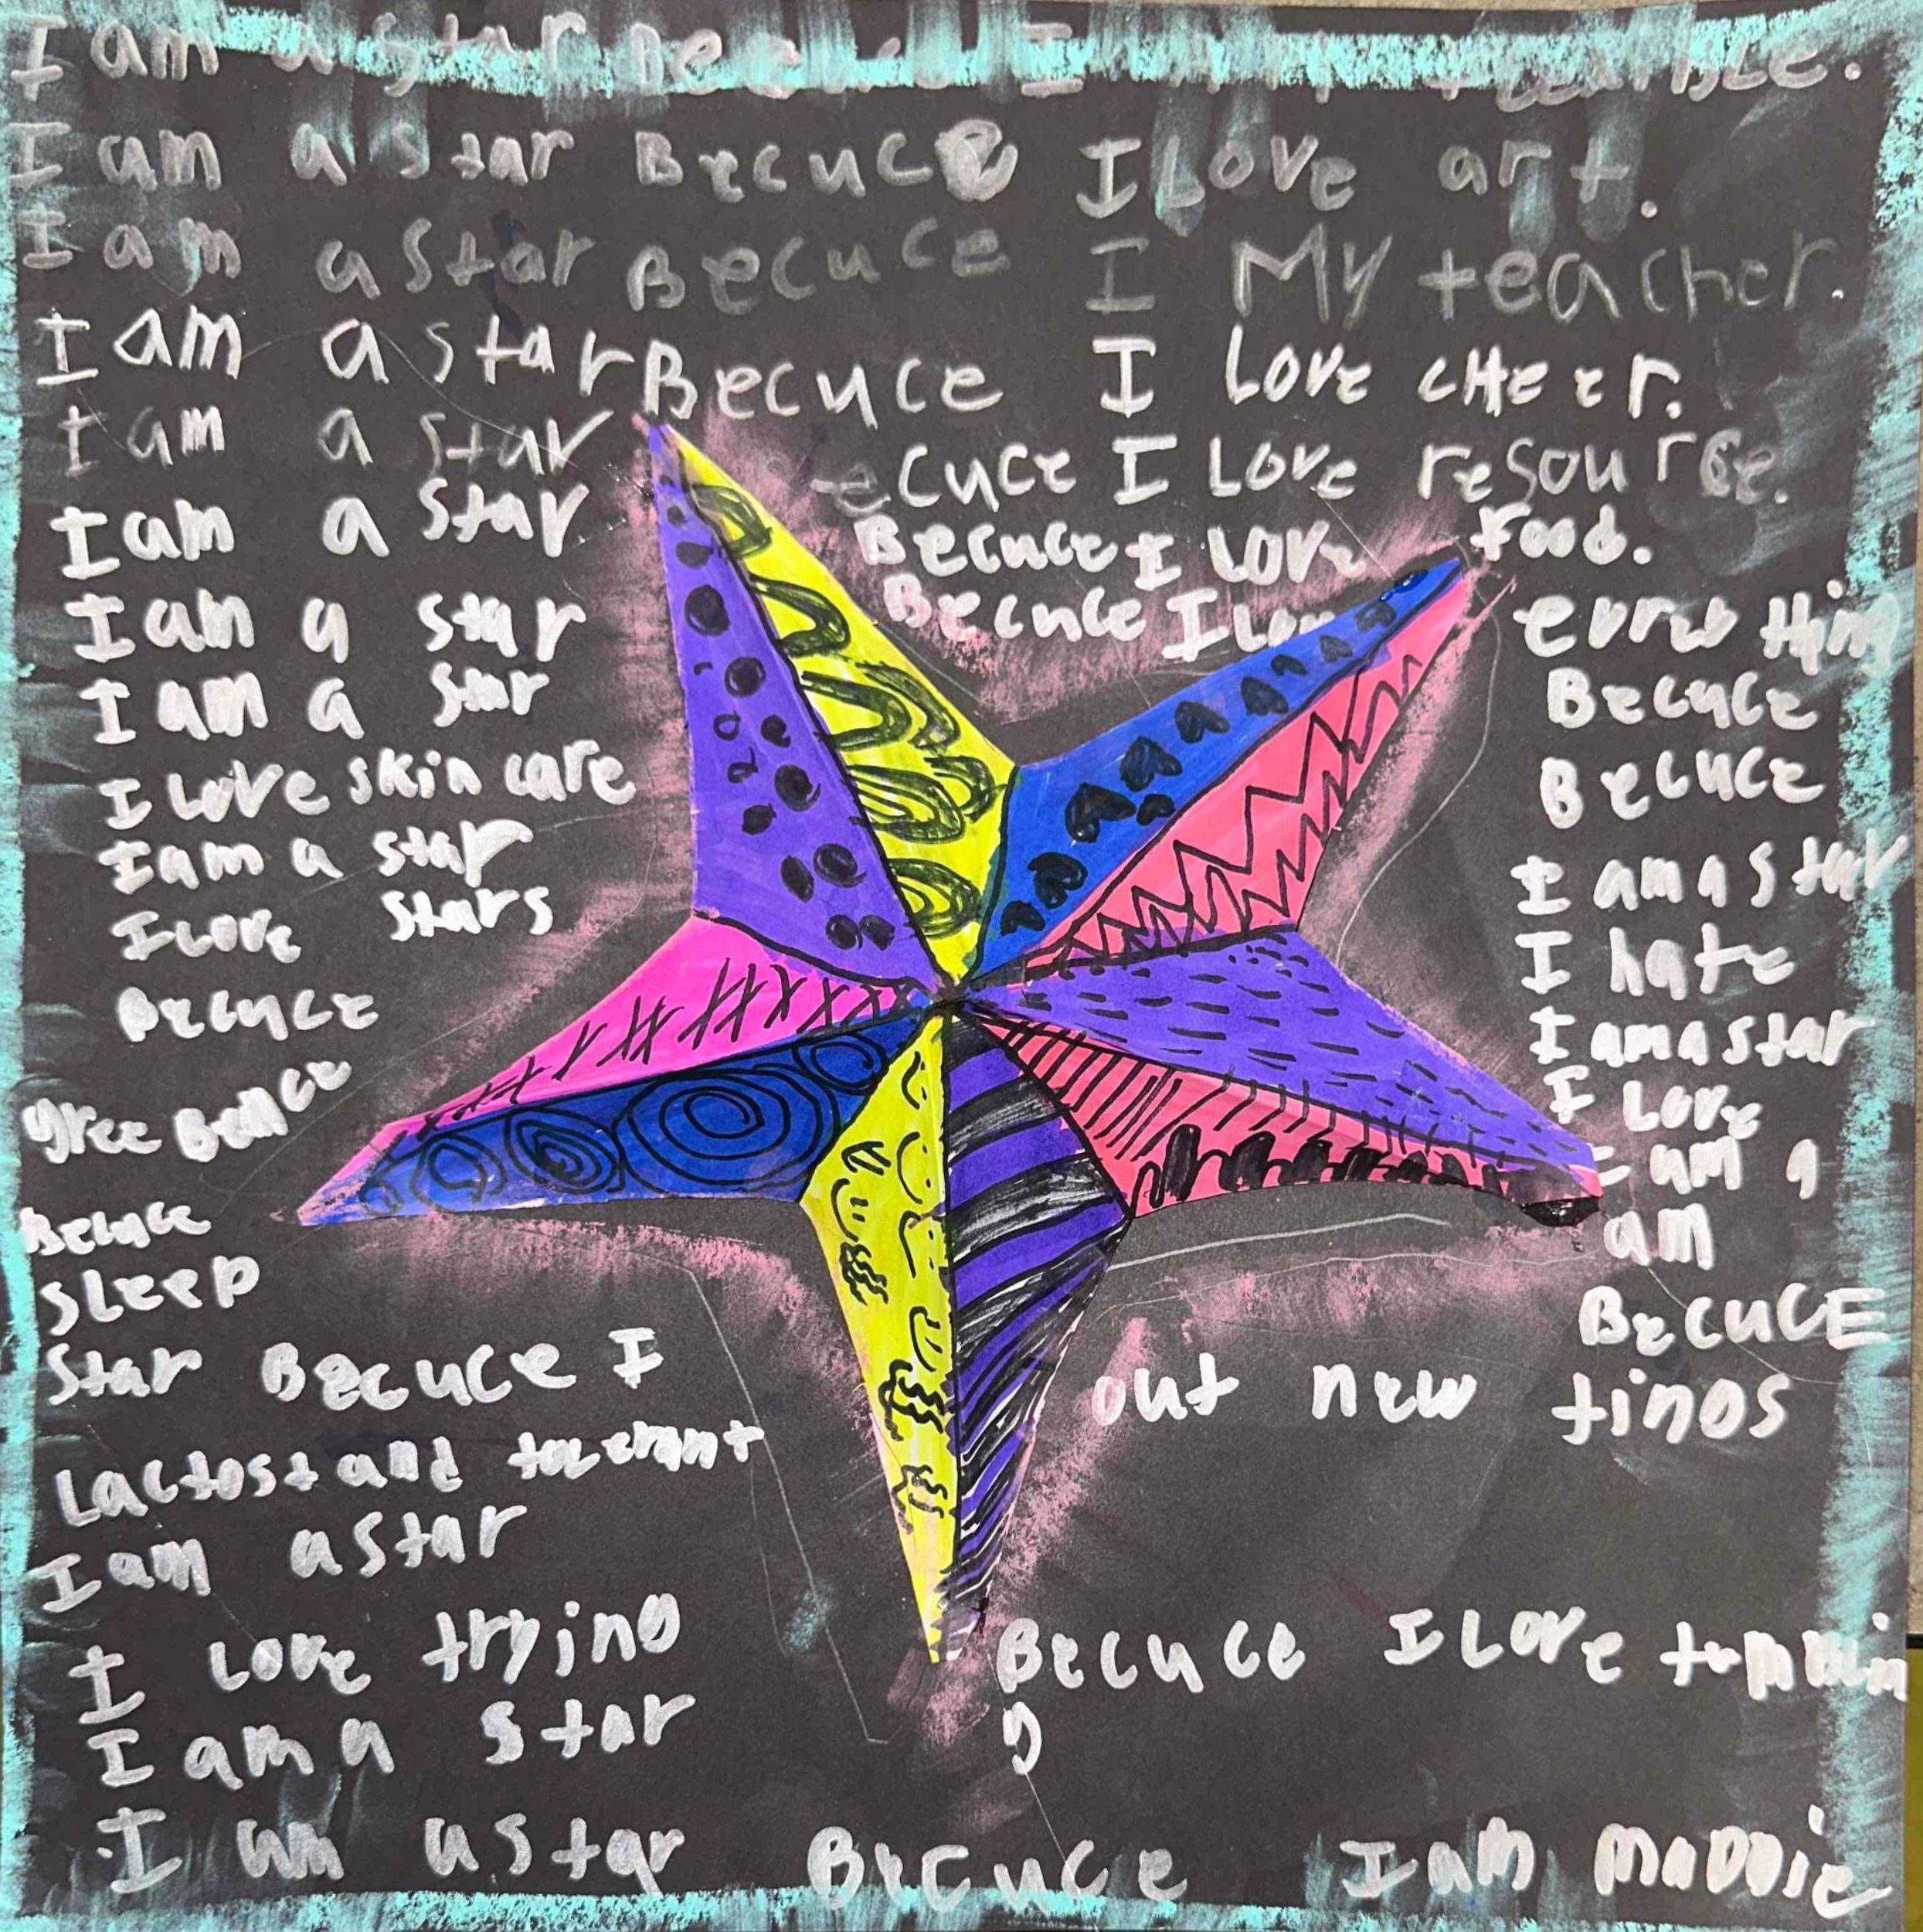 I am a star Be I
I am a star Becuce I Love art.
I am a star Becuce I My teacher.
I am a star Becuce I Love cHeer.
I am a star ecuce I Love resource.
I am a star Becuce I Love Food.
I am a star Becuce I Lov evrw thing
I am a star Becuce
I Love skin care Becuce
I am a star I am a star
I Love stars I hate
Becuce I am a star
gree Beance I Love
Becuce I am a
sleep am
star Becuce I BecucE
Lactost and tolerant out new tinos
I am a star
I Love tryino Becuce I Love
I am a star
I am a star Becuce I am maddie